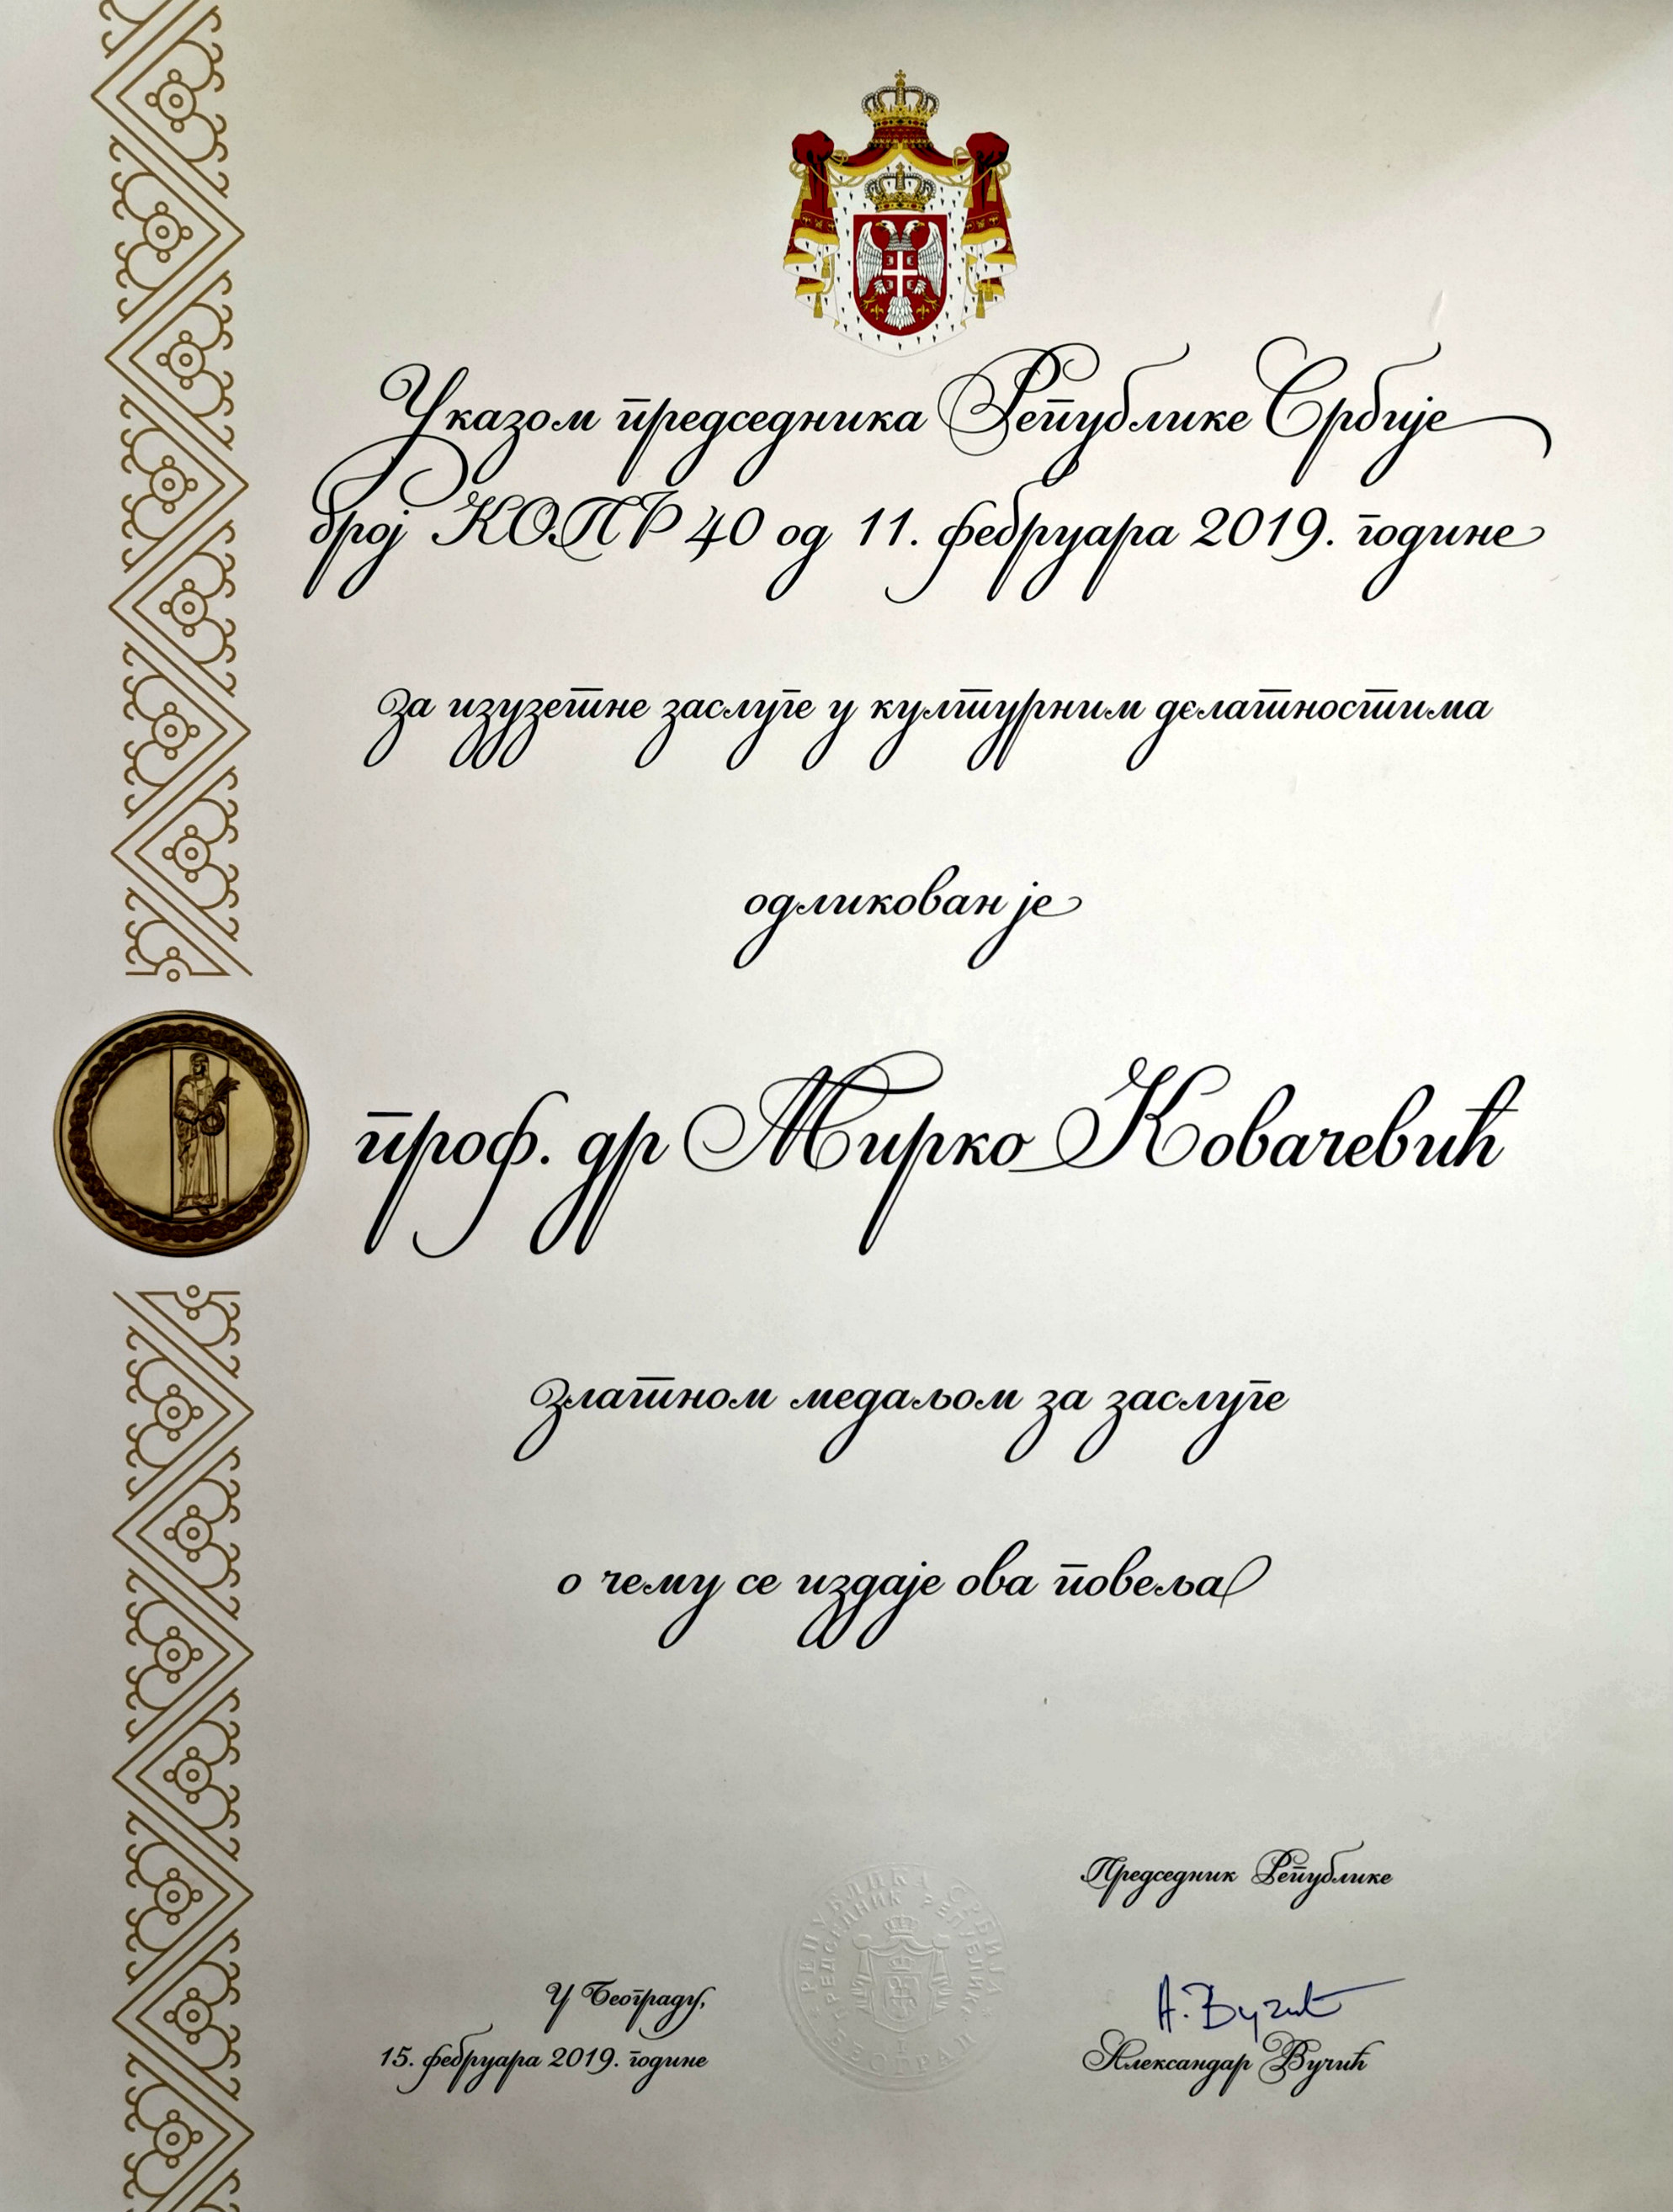 Указом председника Републике Србије
број КОПР 40 од 11. фебруара 2019. године
за изузетне заслуге у културним делатностима
одликован је
проф. др Мирко Ковачевић
златном медаљом за заслуге
о чему се издаје ова повеља
Председник Републике
РЕПУБЛИКА СРБИЈА
ПРЕДСЕДНИК РЕПУБЛИКЕ
БЕОГРАД
I
У Београду,
15. фебруара 2019. године
А. Вучић
Александар Вучић